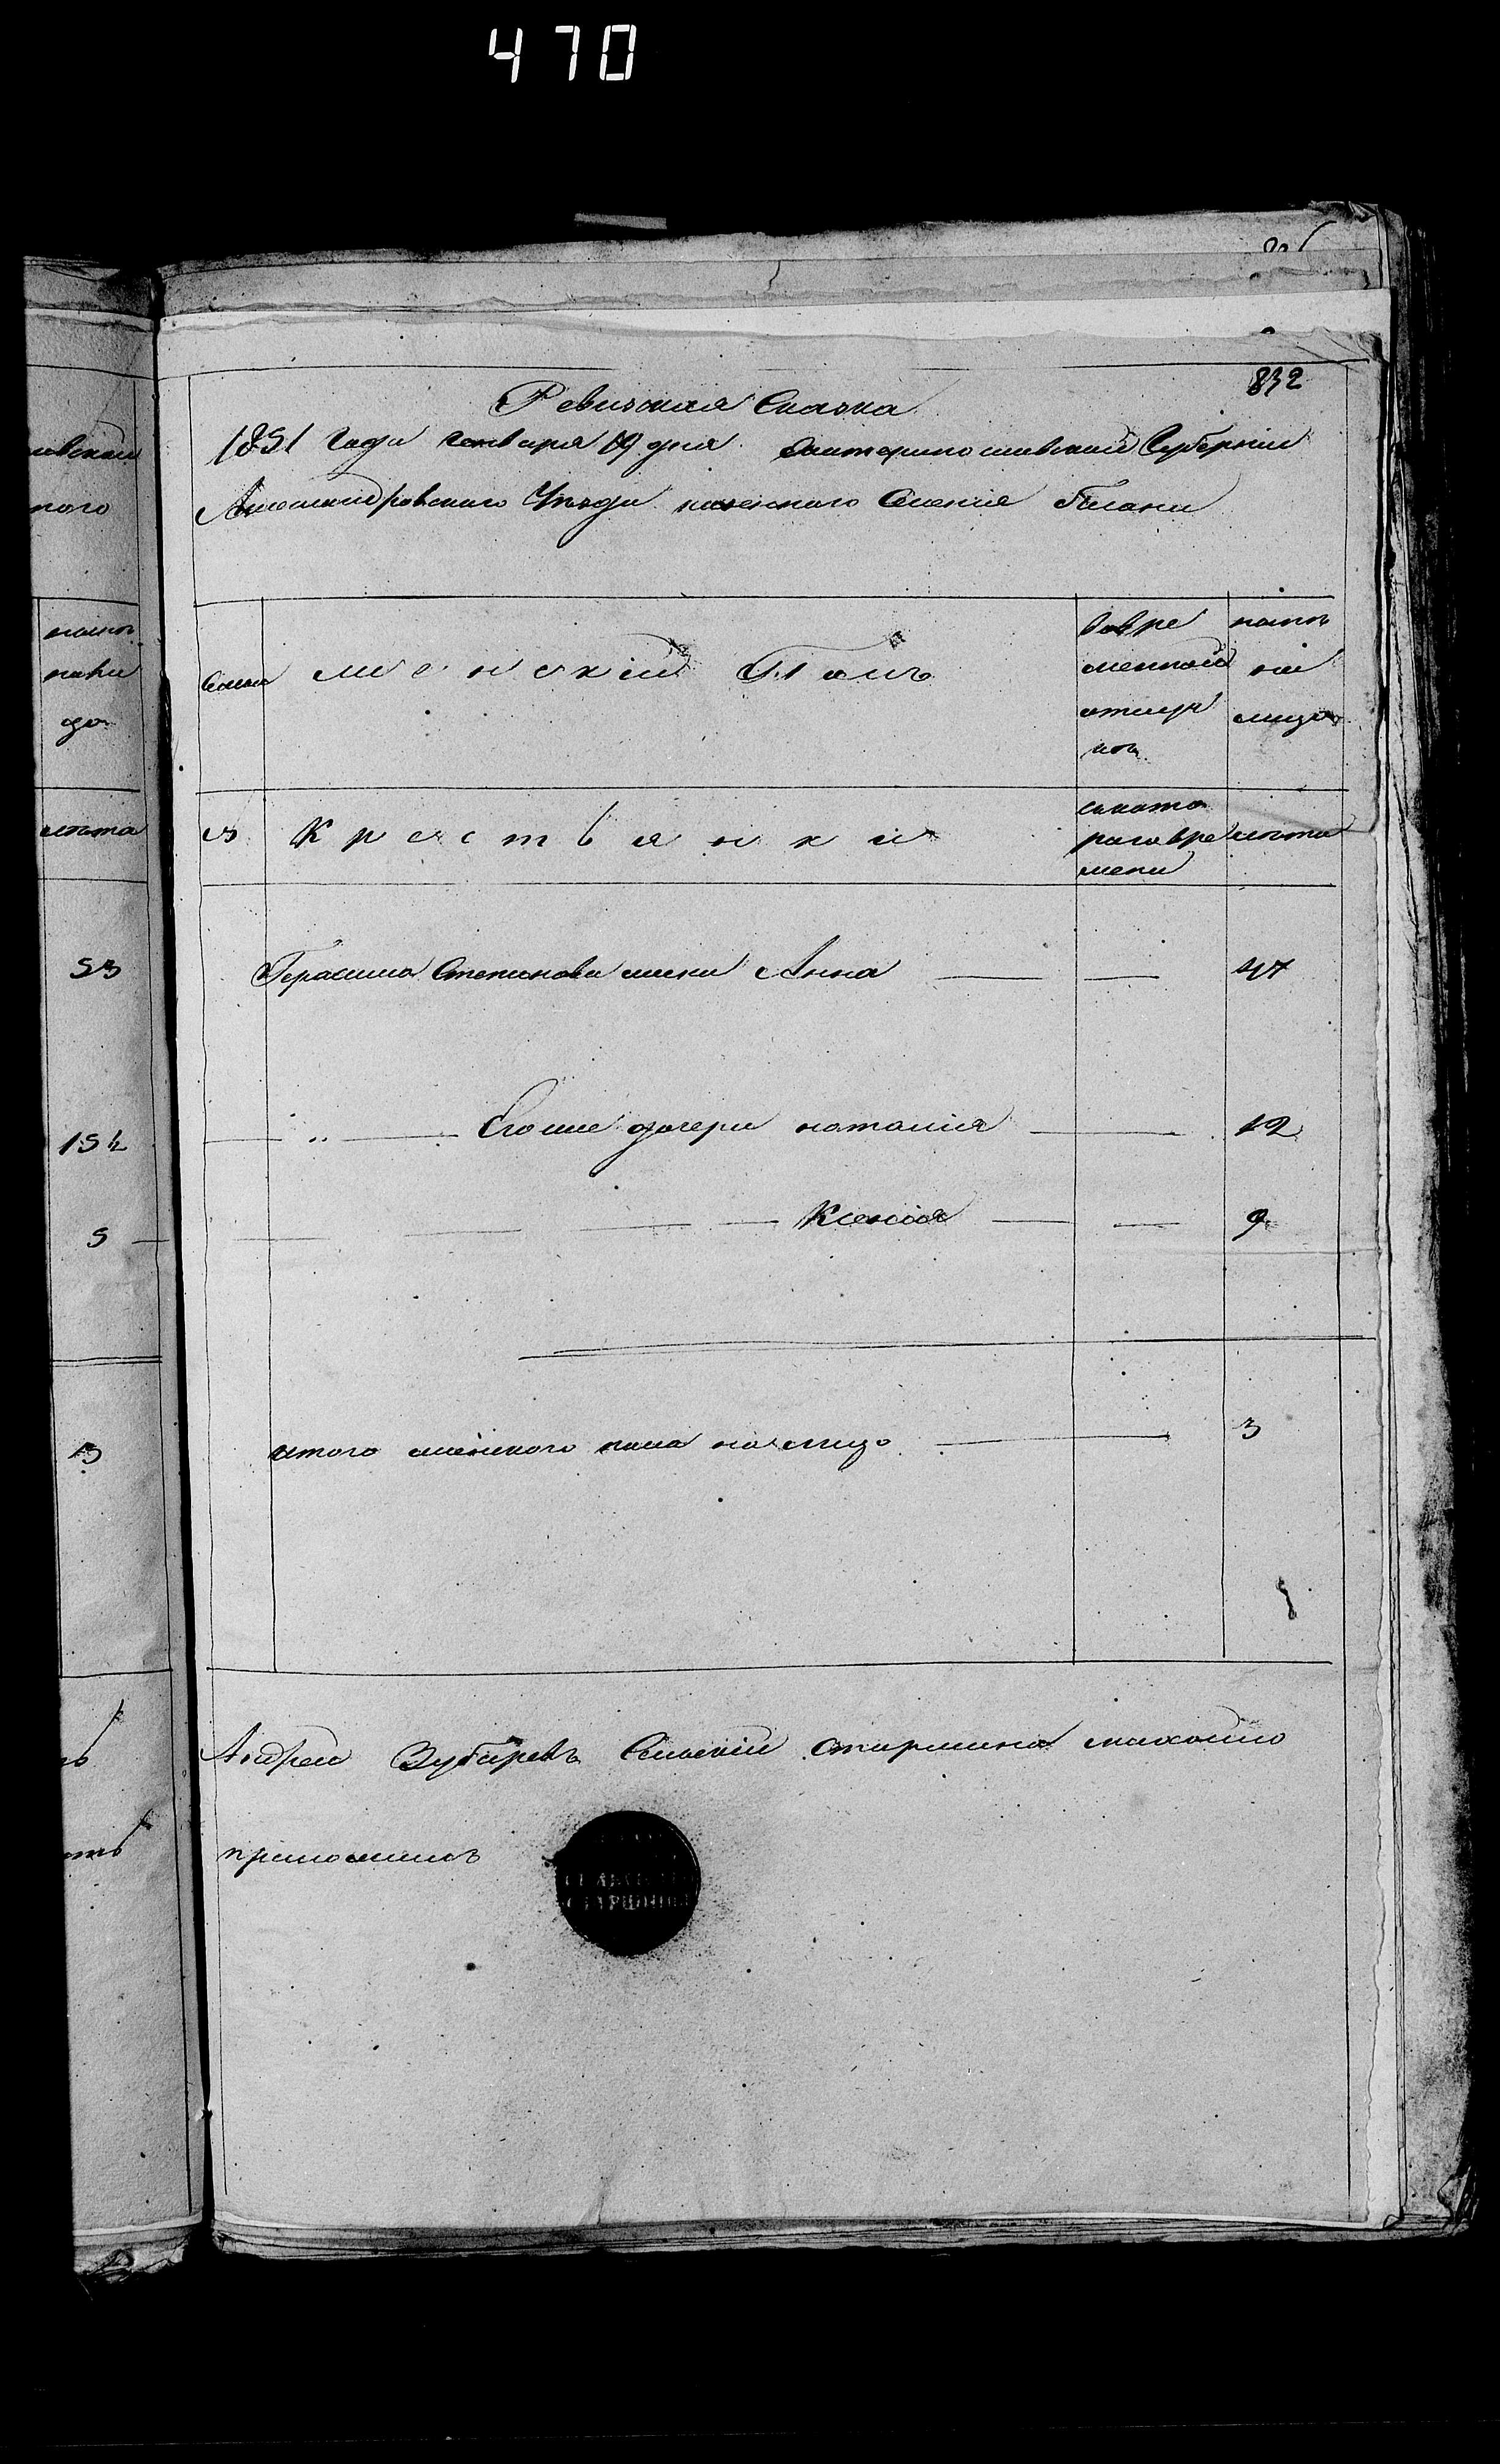 470
832
Ревизская Сказка
1851 Года Генваря 19 дня Екатеринославской Губернии
Александровского Уезда казенного Селения
Семьи
женский Полъ
вовре
менной
отлуч
ке
ныне
на
лицо
3
Крестьянки
ското
раго вре
мени
лета
Герасима Степанова жена Анна 47
Егоже дочери наталия 12
Ксения 9
итого женского пола налицо 3
Андрей Зубаревъ Сельский Старшина
приложилъ
СЕЛЬСКИЙ
СТАРШИНА
53
5
3
лета